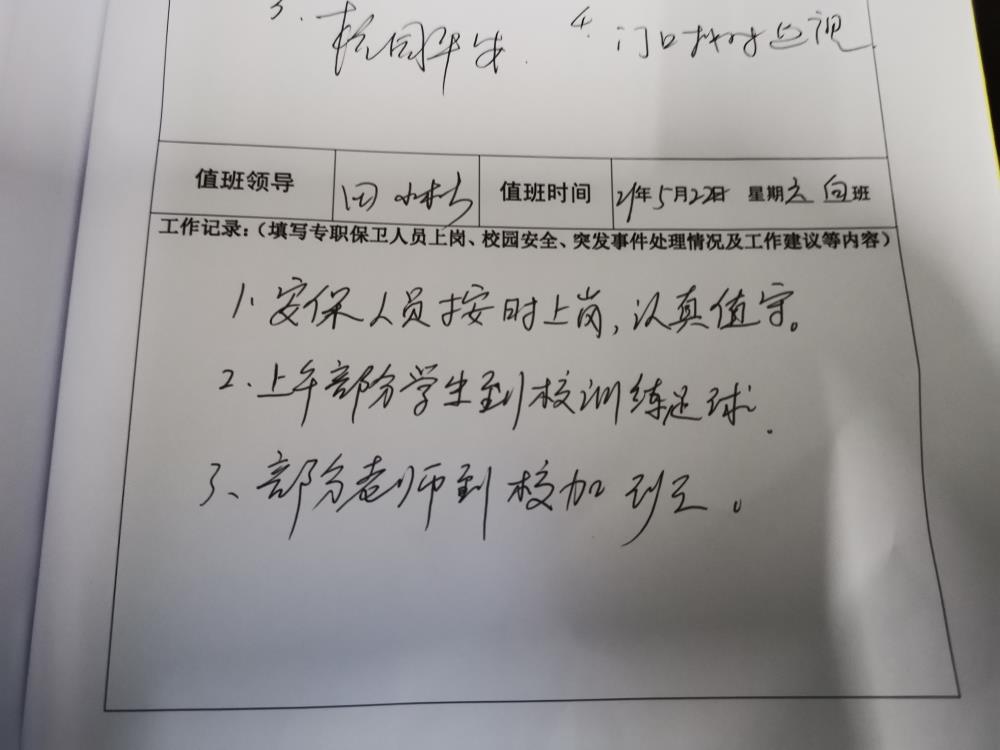 3. 校园
4. 门口
值班领导 田 值班时间 21年5月22日 星期六 白班
工作记录:(填写专职保卫人员上岗、校园安全、突发事件处理情况及工作建议等内容)
1. 安保人员按时上岗,认真值守。
2. 上午部分学生到校训练足球.
3、部分老师到校加班。